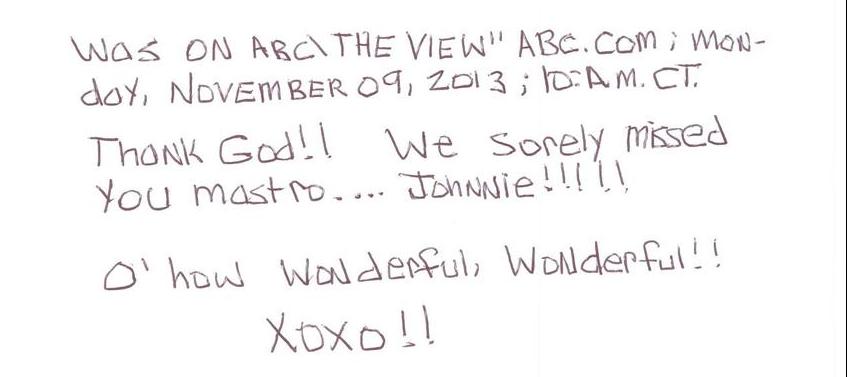 WAS ON ABC\THE VIEW" ABC.COM; MON-
dAY, NOVEMBER 09, 2013; 10:A.M. CT.
THANK God!! We Sorely missed
You mastro.... JOHNNie!!!!!
O' how WoNderful, WoNderful!!
XOXO!!